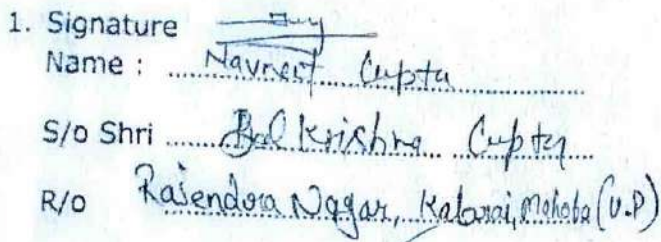 1. Signature
Name : Navneet Gupta
S/o Shri Bal Krishna Gupta
R/o Rajendora Nagar, Kabarai, Mahoba (U.P)